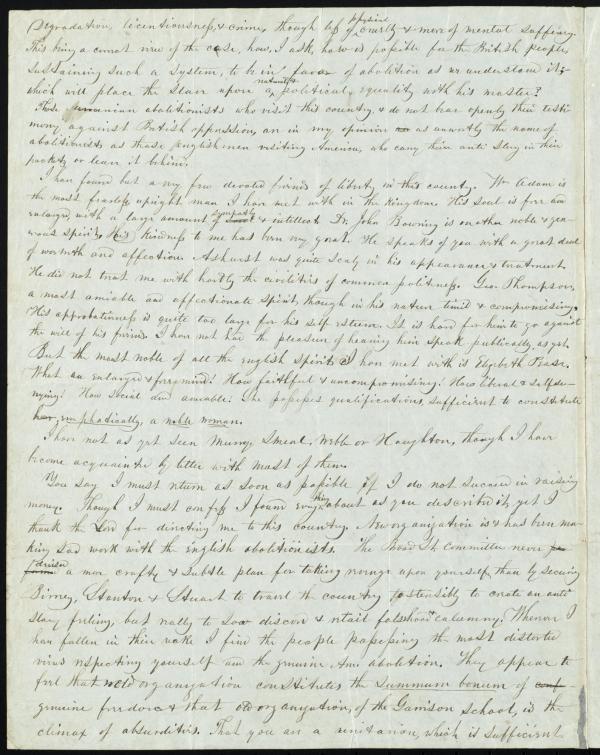 Degradation, licentiousness & crime, though less of physical cruelty & more of mental suffering.
This being a correct view of the case, how, I ask, how is it possible for the British people,
sustaining such a system, to be in favor of abolition as we understand it;
which will place the slave upon naturally & political equality with his master?
Those American abolitionists who visit this country, & do not bear openly their testi-
mony against British oppression, are in my opinion as unworthy the name of
abolitionists as those Englishmen visiting America, who carry their anti slavery in their
pockets or leave it behind.
I have found but a very few devoted friends of liberty in this country. Wm Adam is
the most fearless upright man I have met with in the Kingdom. His soul is free and
enlarged, with a large amount of sympathy & intellect. Dr. John Bowring is another noble & gen-
erous spirit. His kindness to me has been very great. He speaks of you with a great deal
of warmth and affection. Ashurst was quite scaly in his appearance & treatment.
He did not treat me with hardly the civilities of common politeness. Geo. Thompson,
a most amiable and affectionate spirit, though in his nature timid & compromising.
His approbativeness is quite too large for his self esteem. It is hard for him to go against
the will of his friends. I have not had the pleasure of hearing him speak publically as yet.
But the most noble of all the English spirits I have met with is Elizabeth Pease.
What an enlarged & free mind! How faithful & uncompromising! How liberal & selfde-
nying! How social and amiable! She possesses qualifications, sufficient to constitute
her, emphatically, a noble woman.
I have not as yet seen Murray, Smeal, Webb or Haughton, though I have
become acquainted by letter with most of them.
You say I must return as soon as possible if I do not succeed in raising
money. Though I must confess I found things about as you described it, yet I
thank the Lord for directing me to this country. New organization is & has been ma-
king sad work with the English abolitionists. The Broad St. Committee never
devised a more crafty & subtle plan for taking revenge upon yourself, than by securing
Birney, Stanton & Stuart to travel the country ostensibly to create an anti
slavery feeling, but really to sow discord & retail falsehood & calumny. Wherever I
have fallen in their wake I find the people possessing the most distorted
views respecting yourself and the genuine Am. abolition. They appear to
feel that new organization constitutes the summum bonum of
genuine freedom & that old organization, of the Garrison school, is the
climax of absurdities. That you are a unitarian, which is sufficient